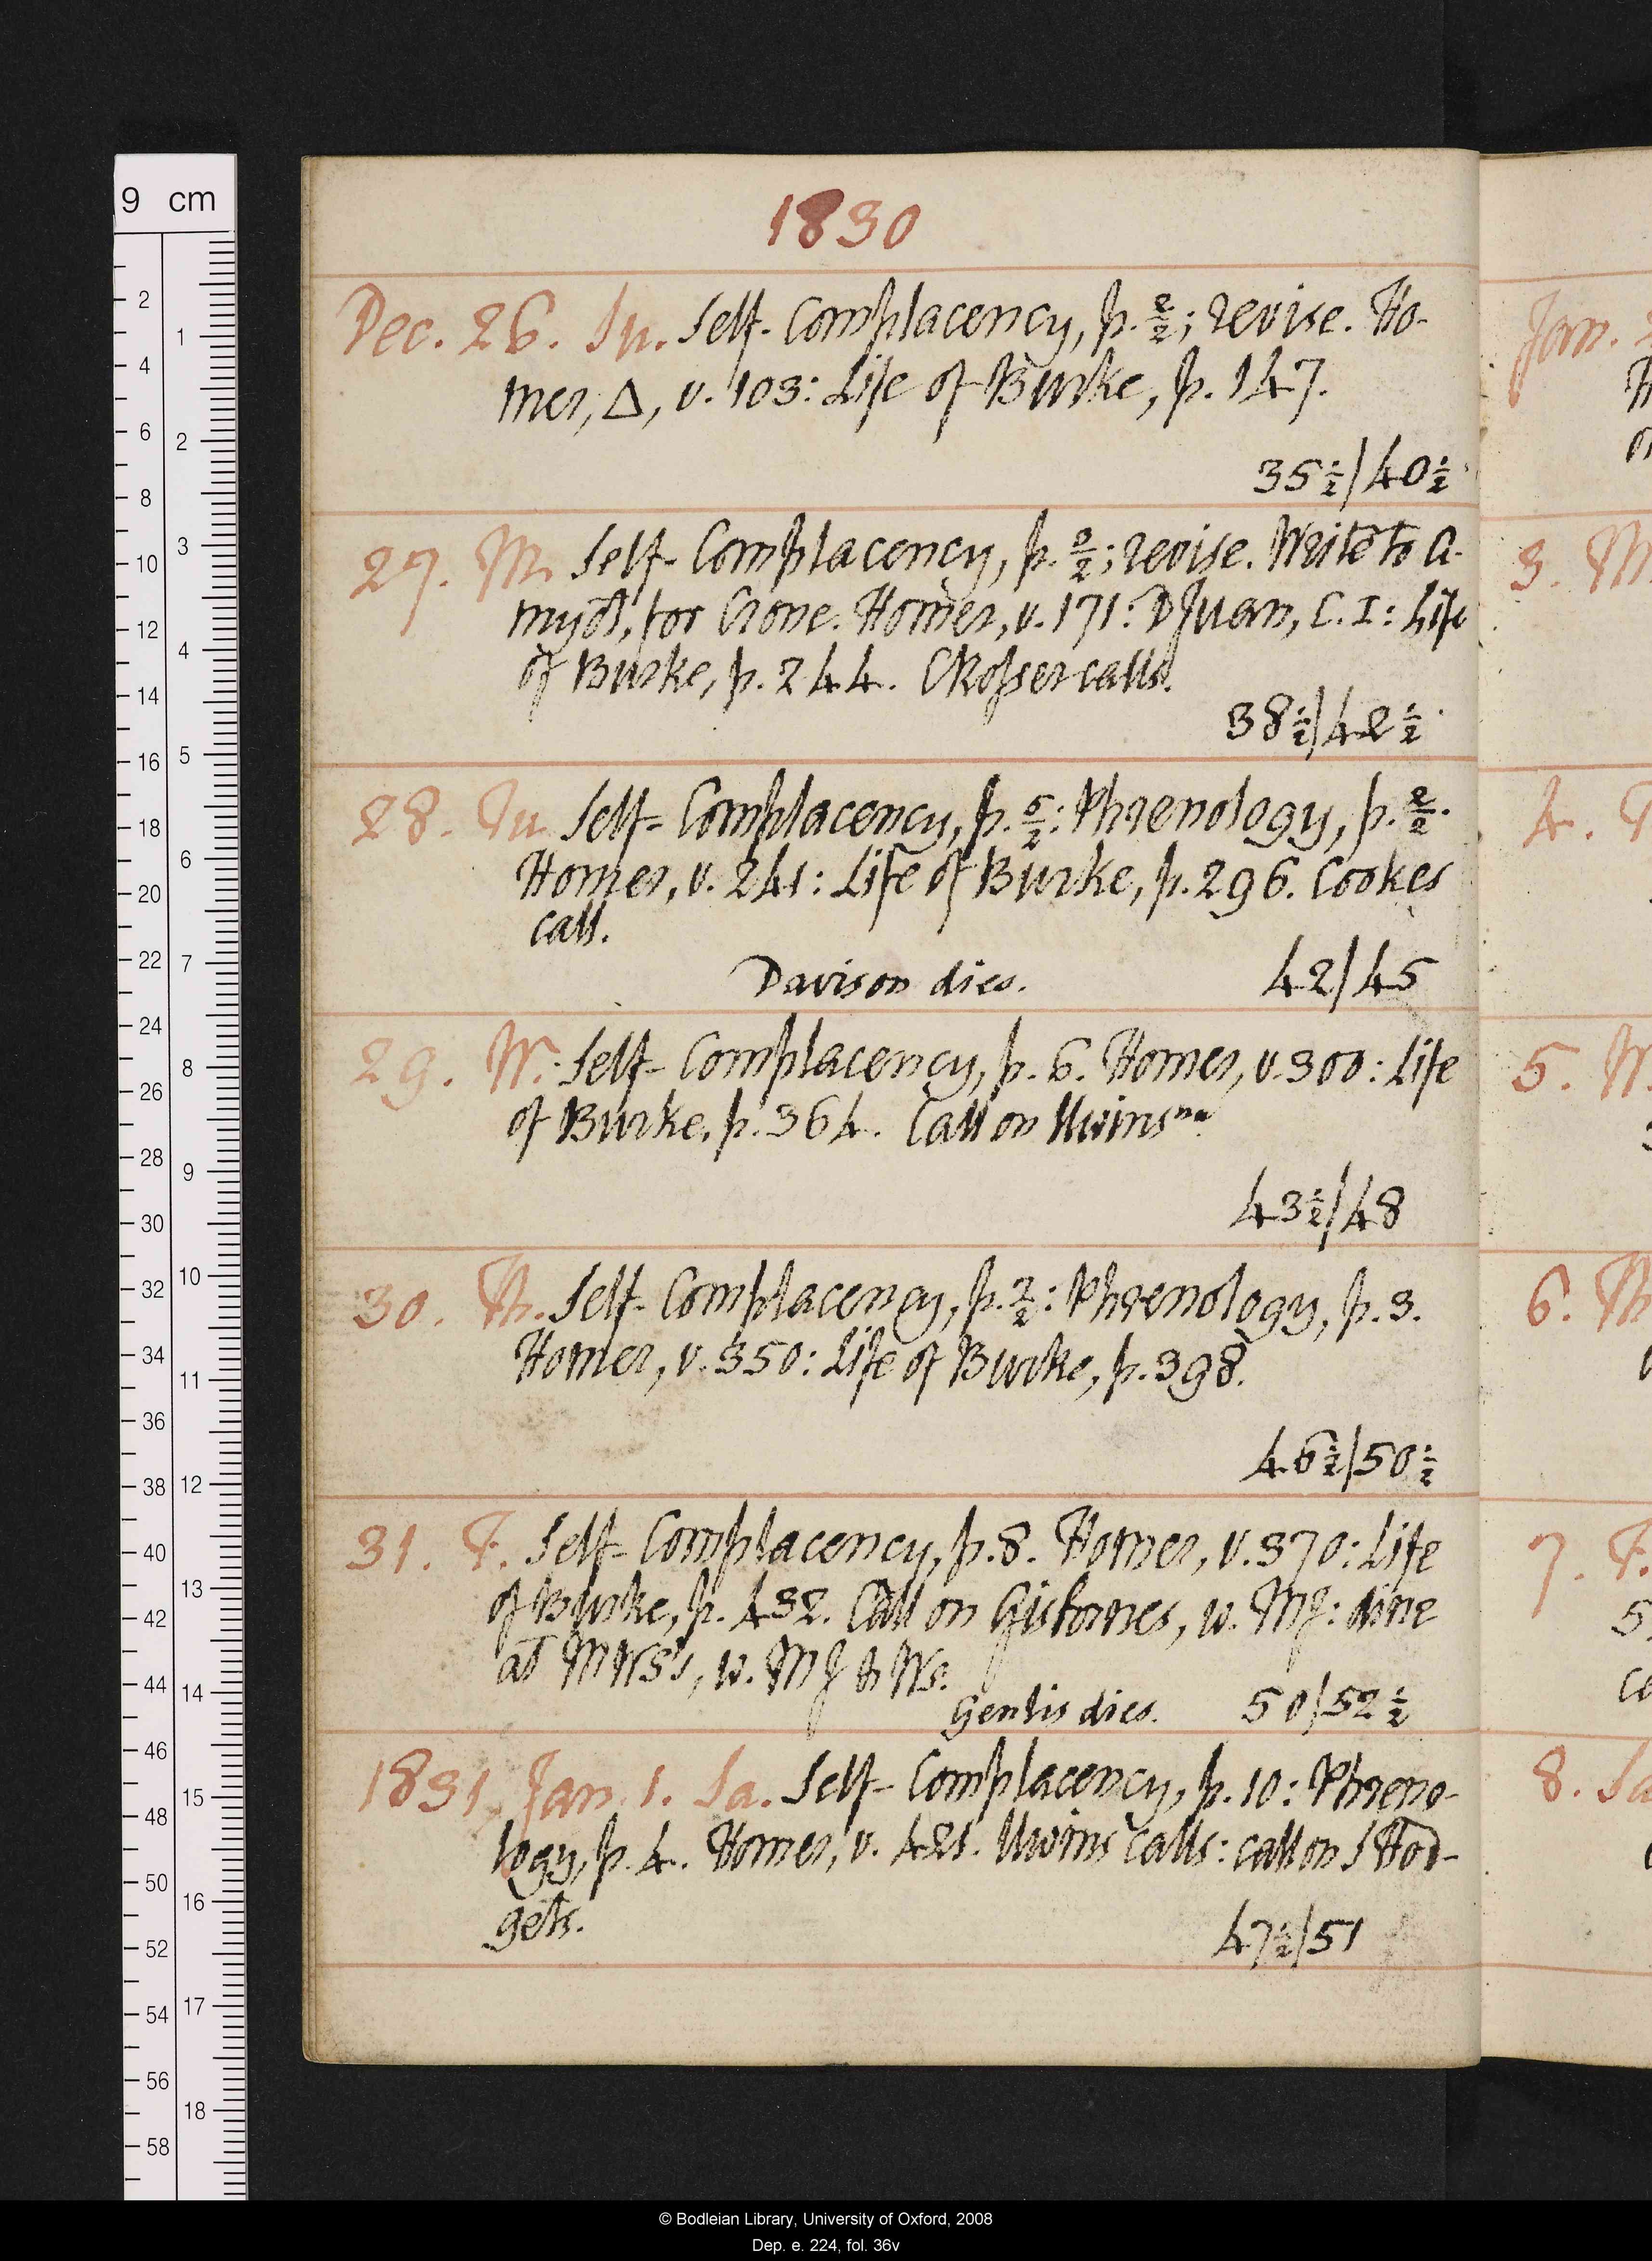 9 cm
1830
Dec. 26. Su. Self-Complacency, p. 2/2; revise. Ho-
mer, Δ, v. 103: Life of Burke, p. 147.
35½/40½
27. M. Self-Complacency, p. 3/2; revise. Write to A-
myot, for Crone. Homer, v. 171: DJuan, C. I: Life
of Burke, p. 244. CRosser calls.
38½/42½
28. Tu. Self-Complacency, p. 5/2: Phrenology, p. 2/2.
Homer, v. 241: Life of Burke, p. 296. Cookes
call.
Davison dies. 42/45
29. W. Self-Complacency, p. 6. Homer, v. 300: Life
of Burke, p. 364. Call on Uwins na
43½/48
30. Th. Self-Complacency, p. 7/2: Phrenology, p. 3.
Homer, v. 350: Life of Burke, p. 398.
46½/50½
31. F. Self-Complacency, p. 8. Homer, v. 370: Life
of Burke, p. 432. Call on Gisbornes, w. MJ: dine
at MWS's, w. MJ & Ws.
Genlis dies. 50/52½
1831 Jan. 1. Sa. Self-Complacency, p. 10: Phreno-
logy, p. 4. Homer, v. 421. Uwins calls: call on S Hod-
gets.
47½/51
Jan.
3. M
4. T
5. W.
6. Th
7. F.
8. Sa
© Bodleian Library, University of Oxford, 2008
Dep. e. 224, fol. 36v